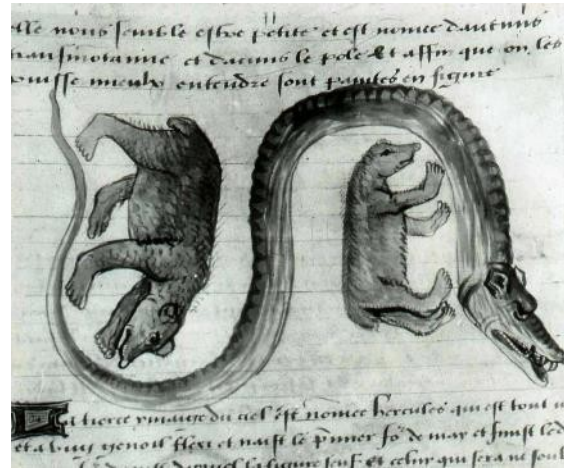 elle nous semble estre petite et est nomee daucuns
transmotanne et dacuns le pole et affin que on les
puisse mieulx entendre sont paintes en figure
La tierce ymaige du ciel est nomee hercules qui est tout
et a ung genoil flexi et naist le pmier jor de may et finist le
la figure sera ne